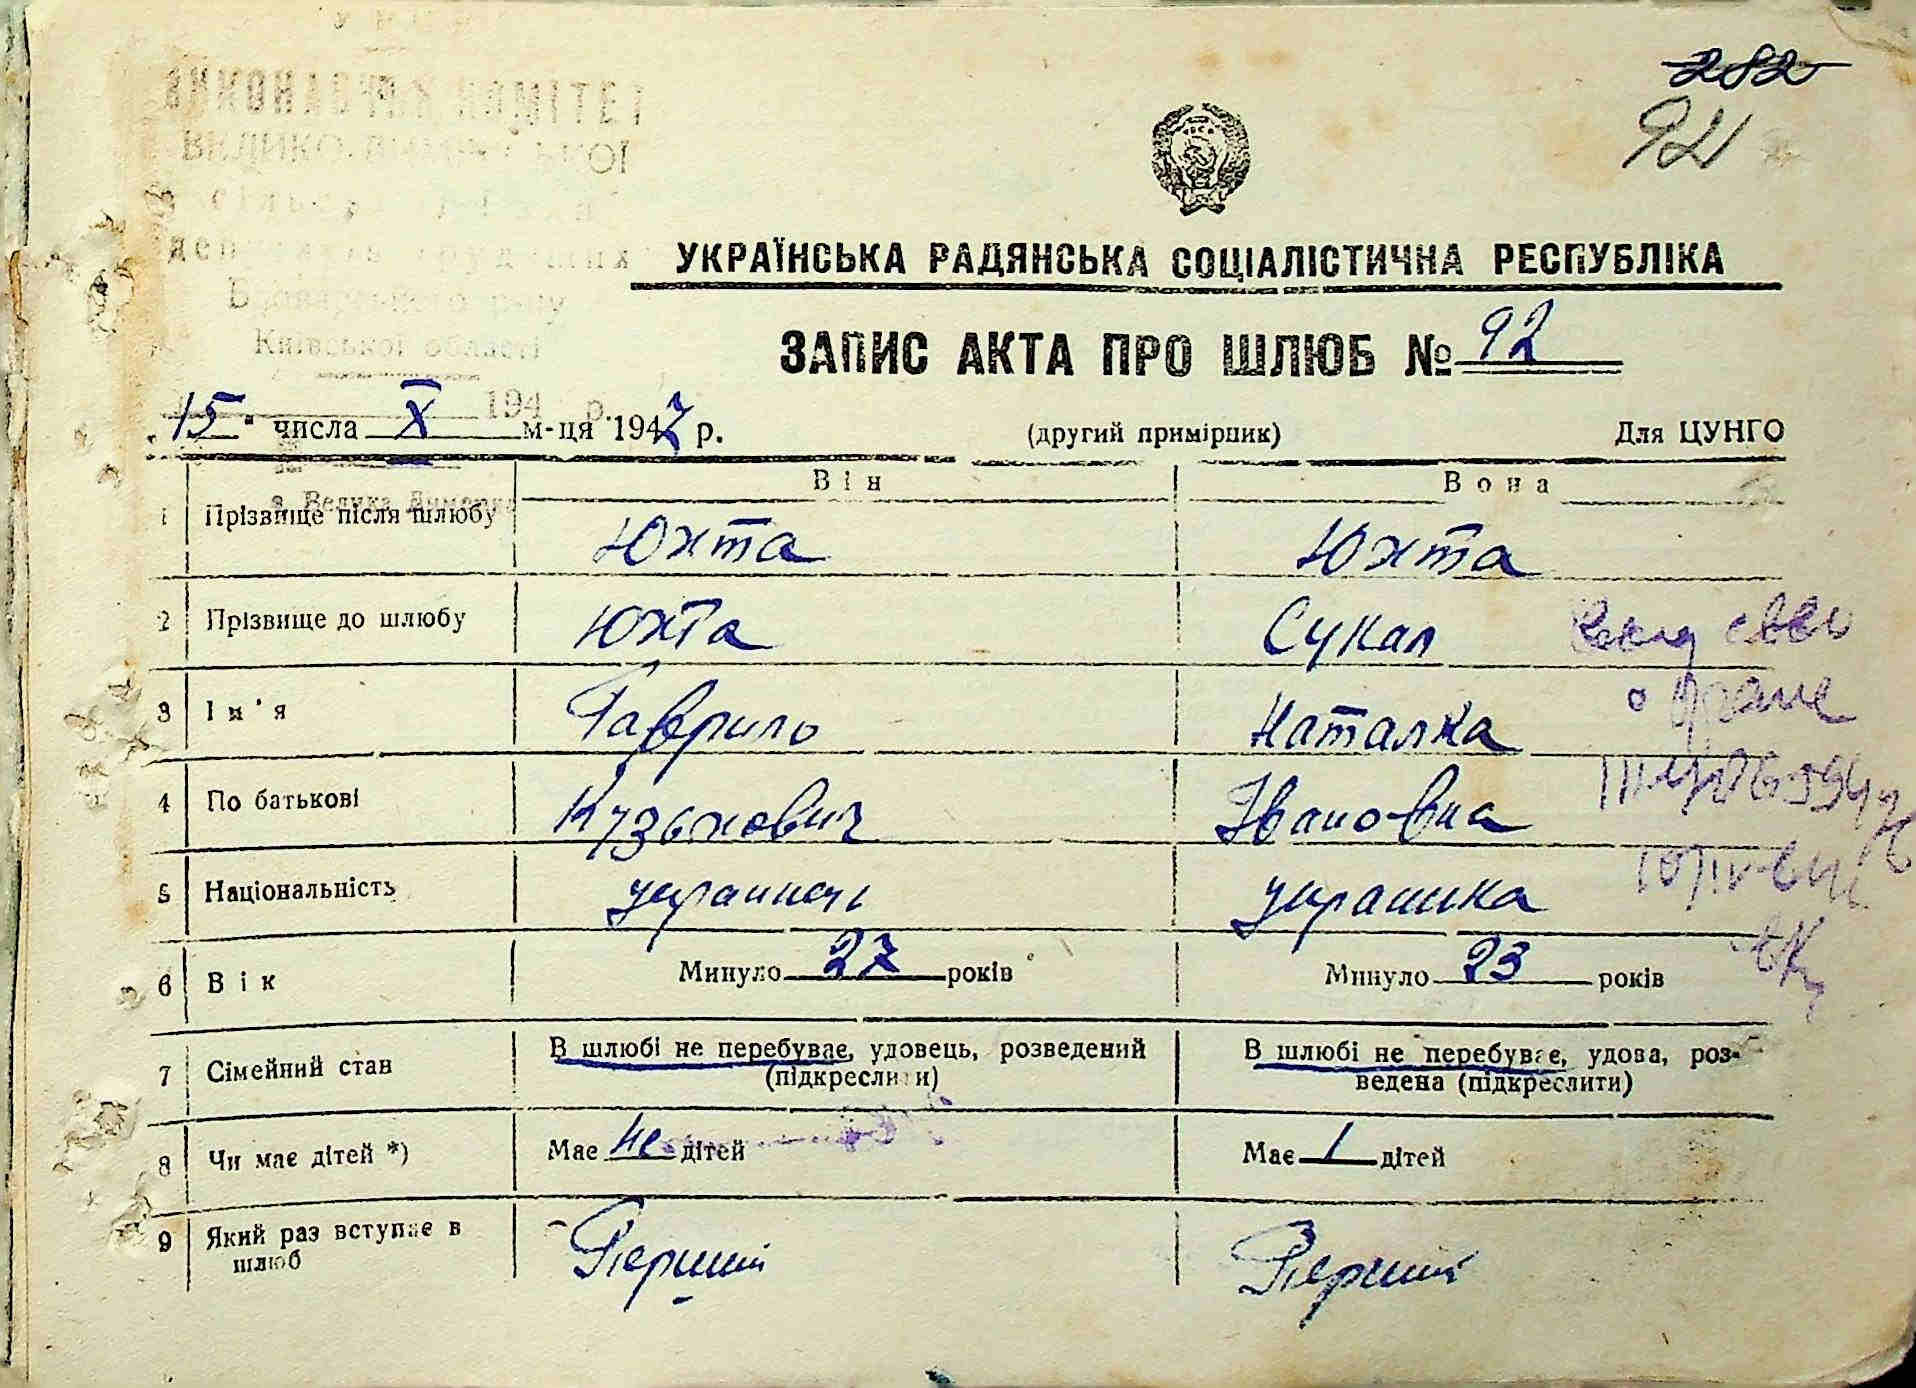 282
92
ВИКОНАВЧИЙ КОМІТЕТ
Броварського р-ну
Київської області
194 р.
с. Велика Димерка
УКРАЇНСЬКА РАДЯНСЬКА СОЦІАЛІСТИЧНА РЕСПУБЛІКА
ЗАПИС АКТА ПРО ШЛЮБ № 92
15 числа X м-ця 1947 р. (другий примірник) Для ЦУНГО
Він Вона
1 Прізвище після шлюбу Юхта Юхта
2 Прізвище до шлюбу Юхта Сукал
3 Ім'я Гаврило Наталка
4 По батькові Кузьмович Івановна
5 Національність украинец украинка
6 Вік Минуло 27 років Минуло 23 років
7 Сімейний стан В шлюбі не перебуває, удовець, розведений (підкреслити) В шлюбі не перебуває, удова, розведена (підкреслити)
8 Чи має дітей *) Має не дітей Має 1 дітей
9 Який раз вступає в шлюб Перший Перший